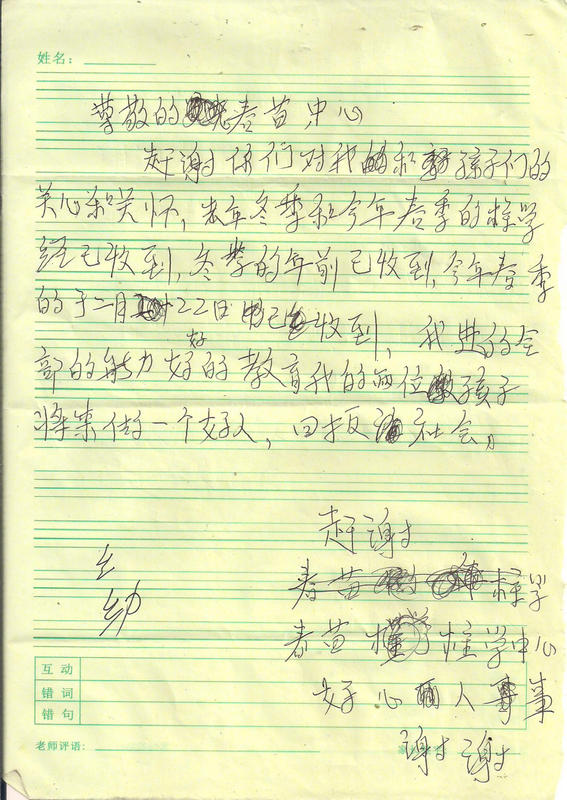 姓名：
尊敬的春苗中心
赶谢你们对我和孩子们的
关心和关怀，去年冬季和今年春季的柱学
经已收到，冬季的年前已收到，今年春季
的于二月22日已收到，我进的全
好
部的能力好的教育我的两位孩子
将来做一个好人，回报社会。
赶谢
春苗 柱学
春苗 柱学中心
好心人
谢谢
互动
错词
错句
老师评语：